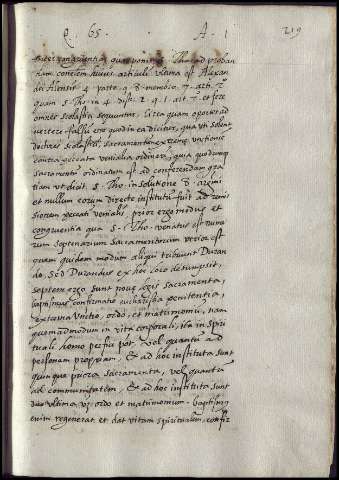 Q. 65 A. 1 219
congruentia quam ponit S. Tho. ad proban
dam concilem huius articuli ultima est Alexan
dri Alensis 4 parte q. 8 membro 7 art. 2
quam S. Tho. in 4 dist. 2 q. 1 art. 2. et fere
omnes scholastici sequuntur. Circa quam oportet ad
vertere falsum esse quod in ea dicitur, quod uti solent
doctores scolastici, sacramentum extremae unctionis
contra peccata venialia ordinari, quia quodcumque
sacramentum ordinatum est ad conferendam gra
tiam ut dicit S. Tho. in solutione 8 argumenti
et nullum eorum directe institutum fuit ad remis
sionem peccati venialis, prior ergo modus et
congruentia qua S. Tho. venatus est nume
rum septenarium sacramentorum verior est
quam quidem modum aliqui tribuunt Duran
do, sed Durandus ex hoc loco detumpsit,
septem ergo sunt novae legis sacramenta,
baptismus confirmatio eucharistia penitentia,
extrema unctio, ordo, et matrimonium, nam
quemadmodum in vita corporali, ita in spiri
tuali homo perfici potest vel quantum ad
personam propriam, & ad hoc instituta sunt
quinque priora sacramenta, vel quantum
ad communitatem, & ad hoc instituta sunt
duo ultima ordo et matrimonium. baptismus
enim regenerat et dat vitam spiritualem, confir